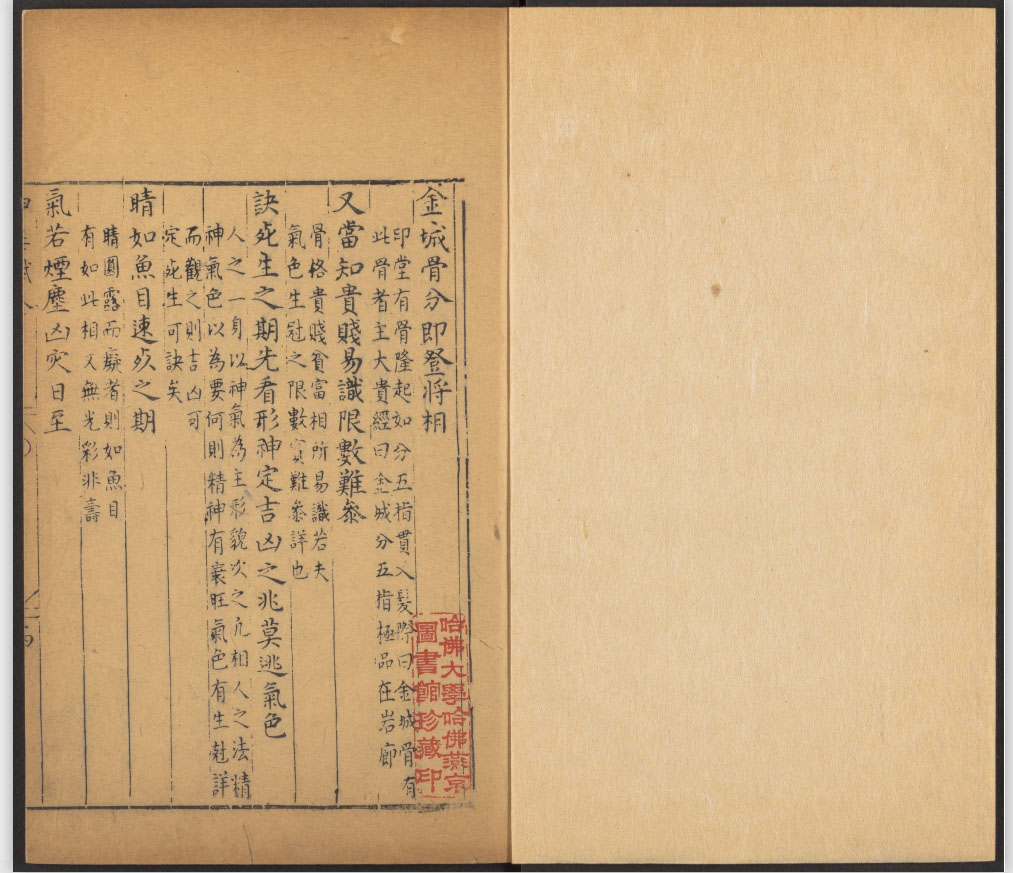 金城骨分即登将相
印堂有骨隆起如分五指貫入髮際曰金城骨有
此骨者主大貴經曰金城分五指極品在岩廊
又當知貴賤易識限數難叅
骨格貴賤貧富相所易識若夫
氣色生尅之限數實難叅詳也
訣死生之期先看形神定吉凶之兆莫逃氣色
人之一身以神氣為主形貌次之凢相人之法精
神氣色以為要何則精神有衰旺氣色有生尅詳
而觀之則吉凶可
定死生可訣矣
睛如魚目速死之期
睛圓露而癡者則如魚目
有如此相又無光彩非壽
氣若煙塵凶灾日至
哈佛大學哈佛燕京
圖書館珍藏印